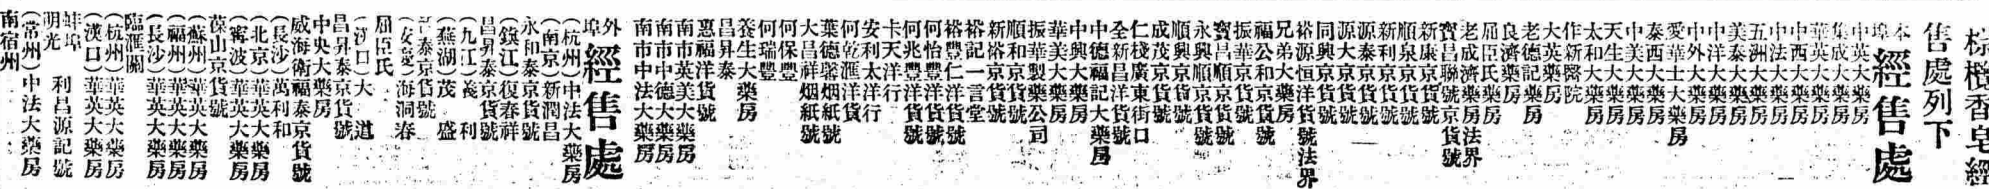 棕欖香皂經
售處列下
本埠經售處
中英大藥房
集成大藥房
華英大藥房
中西大藥房
中法大藥房
五洲大藥房
美泰大藥房
中洋大藥房
中外大藥房
愛華士大藥房
泰西大藥房
中美大藥房
天生大藥房
太和大藥房
作新醫院
大英藥房
老德記藥房
良濟藥房
屈臣氏藥房
老成濟藥房法界
寶昌聯號京貨號
新康京貨號
順泉京貨號
新利京貨號
源泰京貨號
源大京貨號
同興京貨號
裕源恒洋貨號法界
兄弟大藥房
福公和京貨號
振華京貨號
寶昌順京貨號
永興順京貨號
順興京貨號
成茂京貨號
仁棧廣東街口
全新昌洋貨號
中德福記大藥房
中興大藥房
華美大藥房
振華製藥公司
順和京貨號
新裕京貨號
裕記一言堂
裕豐仁洋貨號
何怡豐洋貨號
何兆豐洋貨號
卡天洋行
安利太洋行
何乾滙洋貨
葉德馨烟紙號
大昌祥烟紙號
何保豐
何瑞豐
養生大藥房
昌昇泰
惠福洋貨號
南市英美大藥房
南市中德大藥房
南市中法大藥房
外埠經售處
（杭州）中法大藥房
（南京）新潤昌
永和泰京貨號
（鎮江）復春祥
昌昇泰京貨號
（九江）義利
（蕪湖）茂盛
泰京貨號
（安慶）海洞春
屈臣氏
（河口）大道
昌昇泰京貨號
中央大藥房
威海衛福泰京貨號
（長沙）萬利和
（北京）華英大藥房
（寗波）華英大藥房
葆山京貨號
（蘇州）華英大藥房
（福州）華英大藥房
（長沙）華英大藥房
臨滙關
（杭州）華英大藥房
（漢口）華英大藥房
蚌埠 利昌源記號
明光
（常州）中法大藥房
南宿州